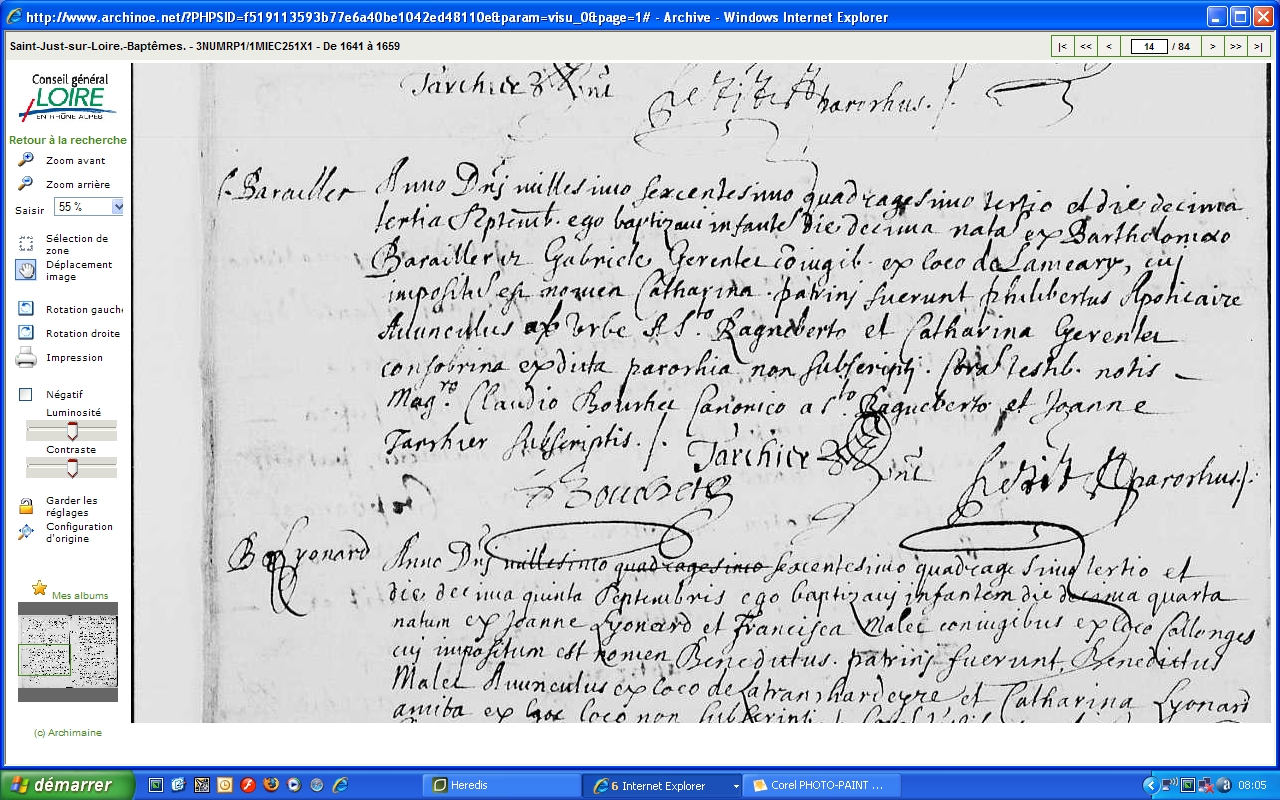 http://www.archinoe.net/?PHPSID=f519113593b77e6a40be1042ed48110e&param=visu_0&page=1# - Archive - Windows Internet Explorer
Saint-Just-sur-Loire.-Baptêmes. - 3NUMRP1/1MIEC251X1 - De 1641 à 1659
|< << < 14 / 84 > >> >|
Conseil général
LOIRE
EN RHÔNE ALPES
Retour à la recherche
Zoom avant
Zoom arrière
Saisir 55 %
Sélection de
zone
Déplacement
image
Rotation gauche
Rotation droite
Impression
Négatif
Luminosité
Contraste
Garder les
réglages
Configuration
d'origine
Mes albums
(c) Archimaine
Tarchier parochus.
Barailler
Anno Dnj millesimo sexcentesimo quadragesimo tertio et die decima
tertia Septemb. ego baptizavi infante die decima nata ex Bartholomæo
Barailler et Gabriele Gerentet coniugib. ex loco de Lameary, cuj
impositu est nomen Catharina. patrinj fuerunt philibertus Apoticaire
Avunculus ex Urbe A Sto. Ragneberto et Catharina Gerentet
consobrina ex dicta parochia non subscripti. Cora testib. notis
Magro. Claudio Bourhet Canonico a Sto. Ragneberto et Joanne
Tarchier subscriptis.
Tarchier parochus.
Bourhet
B Lyonard
Anno Dnj millesimo quadragesimo sexcentesimo quadragesimo tertio et
die decima quinta Septembris ego baptizavj infantem die decima quarta
natum ex Joanne Lyonard et Francisca Malet coniugibus ex loco Collonges
cuj impositum est nomen Benedictus. patrinj fuerunt, Benedictus
Malet Avunculus ex loco de et Catharina Lyonard
amita ex loco non subscripti
démarrer
Heredis
6 Internet Explorer
Corel PHOTO-PAINT ...
08:05